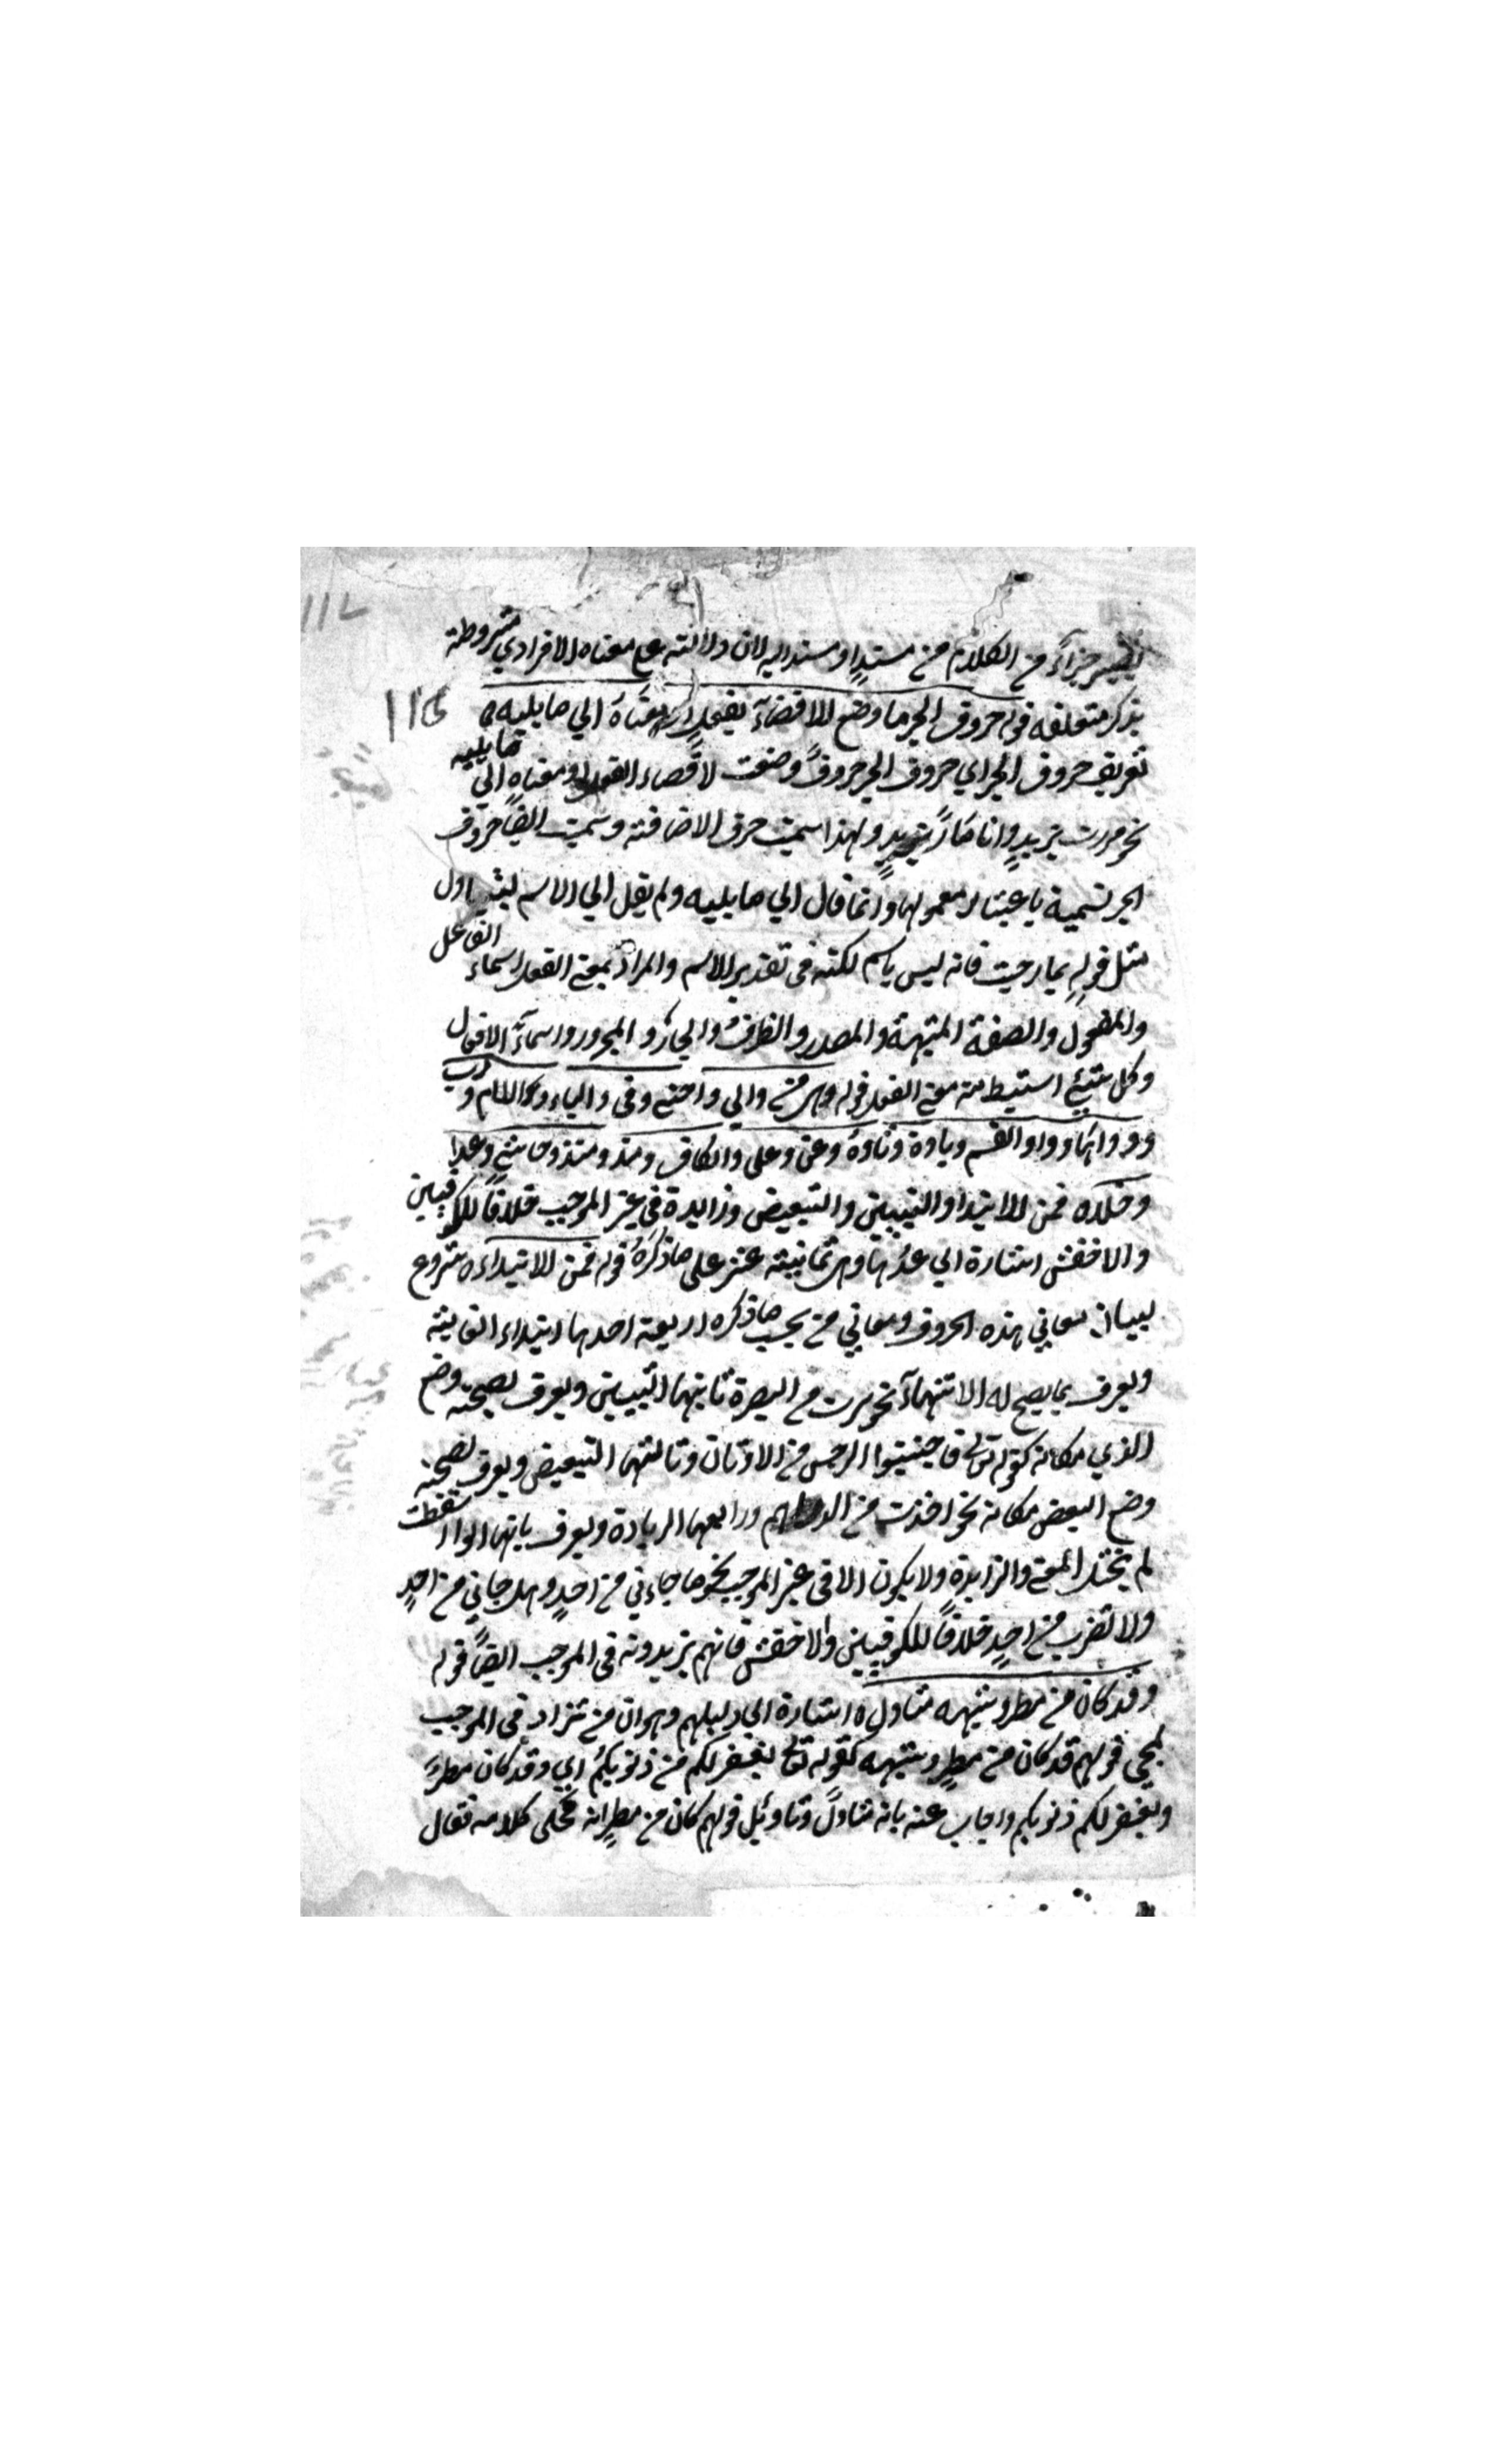 ليصير جزاءً من الكلام من مسندٍ او مسند اليه لان دلالته على معناه الافرادي مشروطة
بذكر متعلقه قوله حروف الجر ما وضع للافضآء بفعلٍ او معناهُ الي ما يليه ه
تعريف حروف الجر اي حروف الجر حروفٌ وضعت لافضاء الفعل او معناه الي ما يليه
نحو مررت بزيدٍ وانا مارٌ بزيدٍ ولهذا سميت حرف الاضافة وسميت ايضاً حروف
الجر تسمية باعتبار معمولها وانما قال الي ما يليه ولم يقل الي الاسم ليتناول
مثل قوله بما رحبت فانه ليس باسم لكنه في تقدير الاسم والمراد بمعنى الفعل اسماء الفاعل
والمفعول والصفة المشبهة والمصدر والظرف والجار والمجرور واسمآء الافعال
وكل شيئٍ استنبط منه معنى الفعل قوله وهي من والي وحتى وفي والباء واللام ورب
وواوها وواو القسم وباوه وتاوه وعن وعلى والكاف ومذ ومنذ وحاشي وعدا
وخلا ه فمن للابتدا والتبيين والتبعيض وزايدة في غير الموجب خلافاً للكوفيين
والاخفش اشارة الي عدّها وهي ثمانية عشر على ما ذكرهُ قوله فمن للابتداء ه شروع
لبيان معاني هذه الحروف ومعاني من بحسب ما ذكره اربعة احدها ابتداء الغاية
ويعرف بما يصح له الانتهآء نحو سرت من البصرة ثانيها التبيين ويعرف بصحة وضع
الذي مكانه كقوله تعالى فاجتنبوا الرجس من الاوثان وثالثها التبعيض ويعرف بصحة
وضع البعض مكانه نحو اخذت من الدراهم ورابعها الزيادة ويعرف بانها لو اسقطت
لم يختل المعنى والزايدة ولا يكون الا في غير الموجب نحو ما جاءني من احدٍ وهل جاني من احدٍ
ولا تضرب من احدٍ خلافاً للكوفيين والاخفش فانهم يزيدونه في الموجب ايضاً قوله
وقد كان من مطر وشبهه متاول ه اشارة الي دليلهم وهو ان من تزاد في الموجب
لمجي قولهم قد كان من مطرٍ وشبهه كقوله تعالى يغفر لكم من ذنوبكم اي وقد كان مطرٌ
ويغفر لكم ذنوبكم واجاب عنه بانه متاولٌ وتاويل قولهم كان من مطرٍ انه محكى كلامه فقال